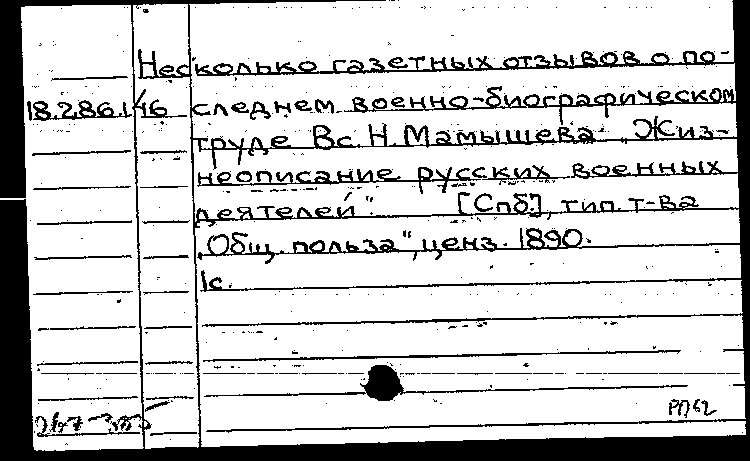 Несколько газетных отзывов о по-
18.286.1/46 следнем военно-биографическом
труде Вс. Н. Мамышева „Жиз-
неописание русских военных
деятелей" [Спб], тип. т-ва
„Общ. польза", ценз. 1890.
1с.
РП62